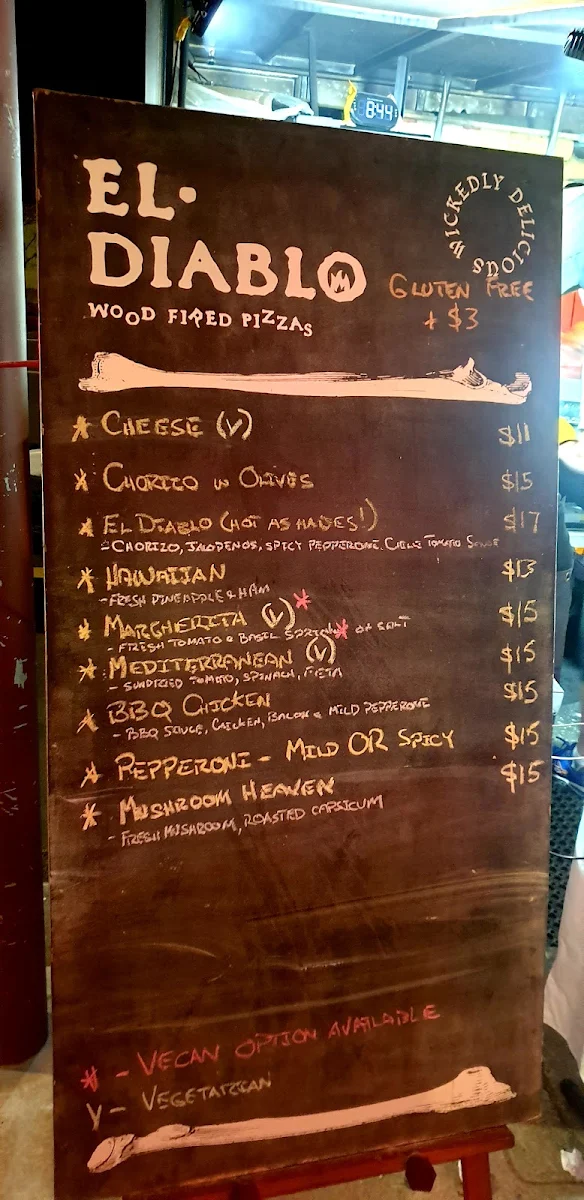 8:44
EL·
DIABLO
WOOD FIRED PIZZAS
WICKEDLY DELICIOUS
GLUTEN FREE
+ $3
* CHEESE (V) $11
* CHORIZO W OLIVES $15
* EL DIABLO (HOT AS HADES!) $17
- CHORIZO, JALOPENOS, SPICY PEPPERONI, CHILLI TOMATO SAUCE
* HAWAIIAN $13
- FRESH PINEAPPLE & HAM
* MARGHERITA (V)* $15
- FRESH TOMATO & BASIL SALT
* MEDITERRANEAN (V) $15
- SUNDRIED TOMATO, SPINACH, FETA
* BBQ CHICKEN $15
- BBQ SAUCE, CHICKEN, BACON & MILD PEPPERONI
* PEPPERONI - MILD OR SPICY $15
* MUSHROOM HEAVEN $15
- FRESH MUSHROOM, ROASTED CAPSICUM
* - VEGAN OPTION AVAILABLE
V - VEGETARIAN